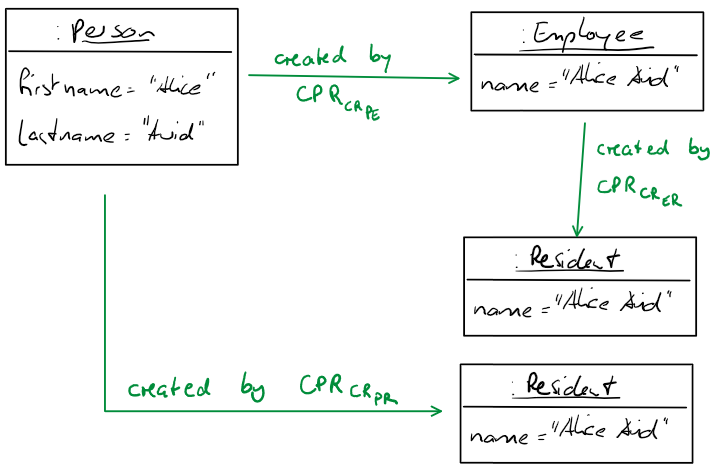 : Person
firstname = "Alice"
lastname = "Avid"
created by
CPR CR PE
: Employee
name = "Alice Avid"
created by
CPR CR ER
: Resident
name = "Alice Avid"
created by CPR CR PR
: Resident
name = "Alice Avid"